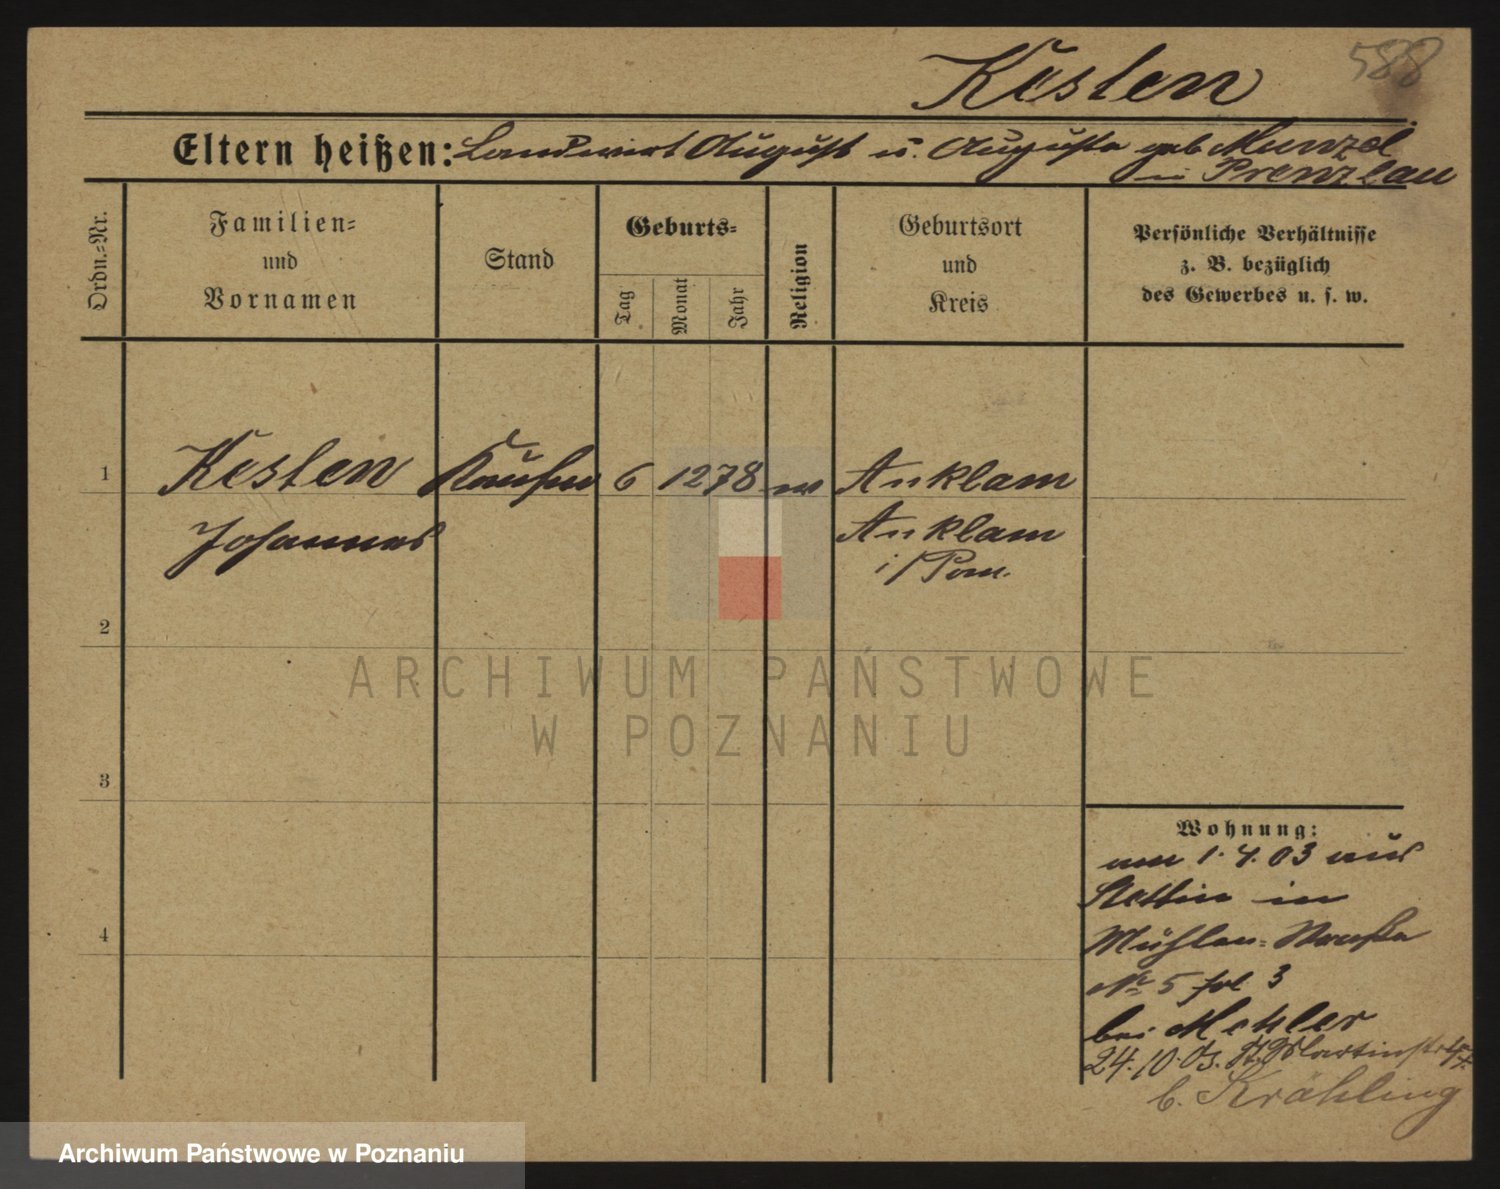 588
Kesten
Eltern heißen: Landwirt August u. Augusta geb Menzel
in Prenzlau
Ordn.-Nr.
Familien- und Vornamen
Stand
Geburts-
Tag
Monat
Jahr
Religion
Geburtsort und Kreis
Persönliche Verhältnisse
z. B. bezüglich
des Gewerbes u. s. w.
1 Kesten Kaufm 6 12 78 ev Anklam
Johannes Anklam
i/Pom.
2
3
4
Wohnung:
am 1.4.03 aus
Stettin in
Mühlen-Straße
No 5 fol 3
bei Mehler
24.10.03. St. Martinstr
b. Krähling
ARCHIWUM PAŃSTWOWE
W POZNANIU
Archiwum Państwowe w Poznaniu